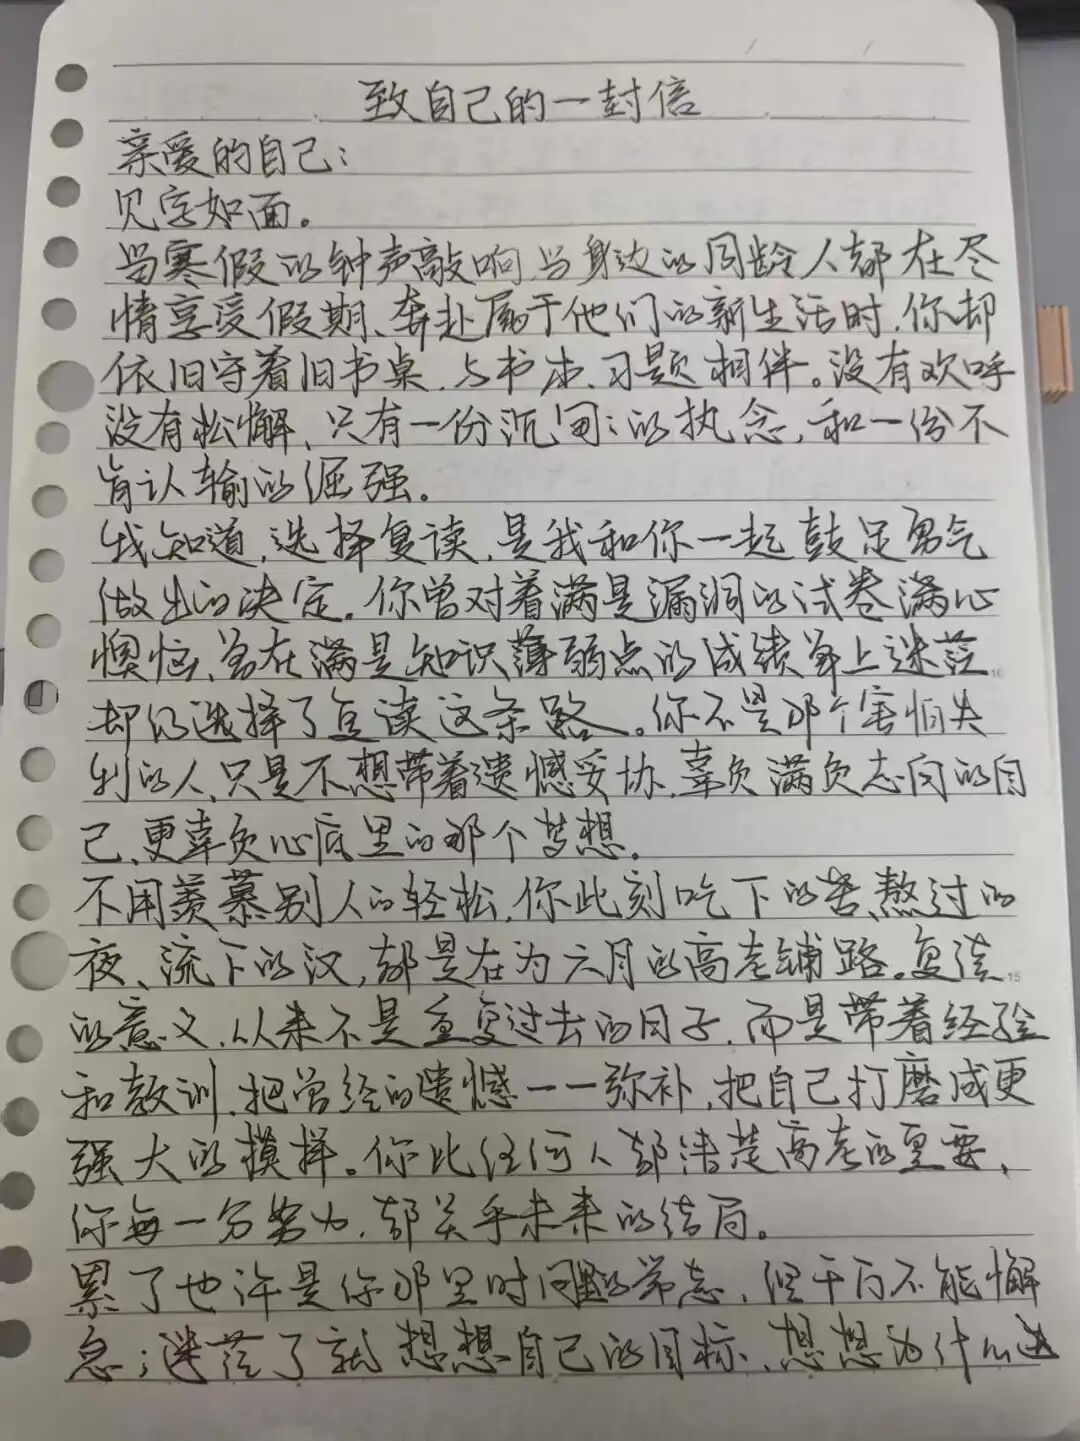 致自己的一封信
亲爱的自己：
见字如面。
当寒假的钟声敲响，当身边的同龄人都在尽
情享受假期、奔赴属于他们的新生活时，你却
依旧守着旧书桌，与书本、习题相伴。没有欢呼
没有松懈、只有一份沉甸甸的执念，和一份不
肯认输的倔强。
我知道，选择复读，是我和你一起鼓足勇气
做出的决定。你曾对着满是漏洞的试卷满心
懊恼、曾在满是知识薄弱点的成绩单上迷茫
却仍选择了复读这条路。你不是那个害怕失
利的人，只是不想带着遗憾妥协，辜负满负志向的自
己、更辜负心底里的那个梦想。
不用羡慕别人的轻松，你此刻吃下的苦、熬过的
夜、流下的汉，都是在为六月的高考铺路。复读
的意义，从来不是重复过去的日子，而是带着经验
和教训，把曾经的遗憾一一弥补，把自己打磨成更
强大的摸样。你比任何人都清楚高考的重要，
你每一分努力，都关乎未来的结局。
累了也许是你那里时间的常态，但千万不能懈
怠；迷茫了就想想自己的目标、想想为什么